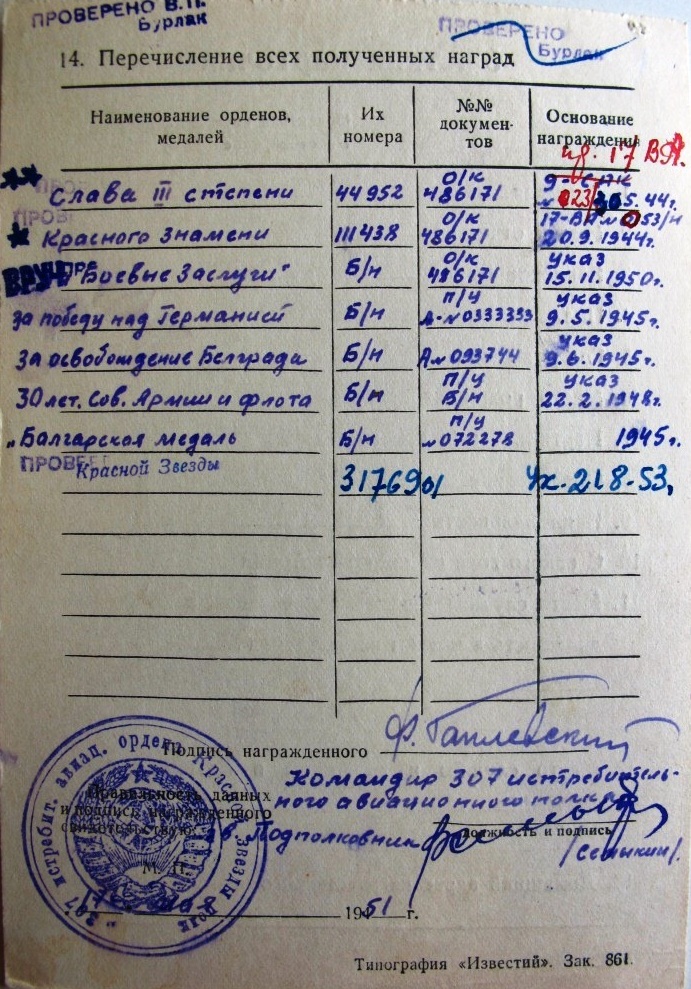 ПРОВЕРЕНО В.П.
Бурлак
ПРОВЕРЕНО
Бурлак
14. Перечисление всех полученных наград
Наименование орденов, медалей
Их номера
№№ докумен-тов
Основание награждения
пр. 17 ВА
Слава III степени 44952 о/к 486171 5.44г.
Красного Знамени 111438 о/к 486171 20.9.1944г.
ВРУЧ "Боевые Заслуги" Б/н о/к 486171 указ 15.11.1950г.
За победу над Германией Б/н п/у А-№0333393 указ 9.5.1945г.
За освобождение Белграда Б/н А№093744 указ 9.6.1945г.
30 лет. Сов. Армии и флота Б/н п/у Б/н указ 22.2.1948г.
"Балгарская медаль Б/н п/у №072278 1945г.
ПРОВЕРЕ
Красной Звезды 3176901 Ук. 21.8-53,
Подпись награжденного
Командир 307 истребитель-
ного авиационного полка
Правильность данных
и подпись награжденного
свидетельствую:
гв. Подполковник
должность и подпись
/Сетыкин/.
М. П.
1951 г.
307 истребит. авиац. ордена Красной Звезды полк
Типография «Известий». Зак. 861.